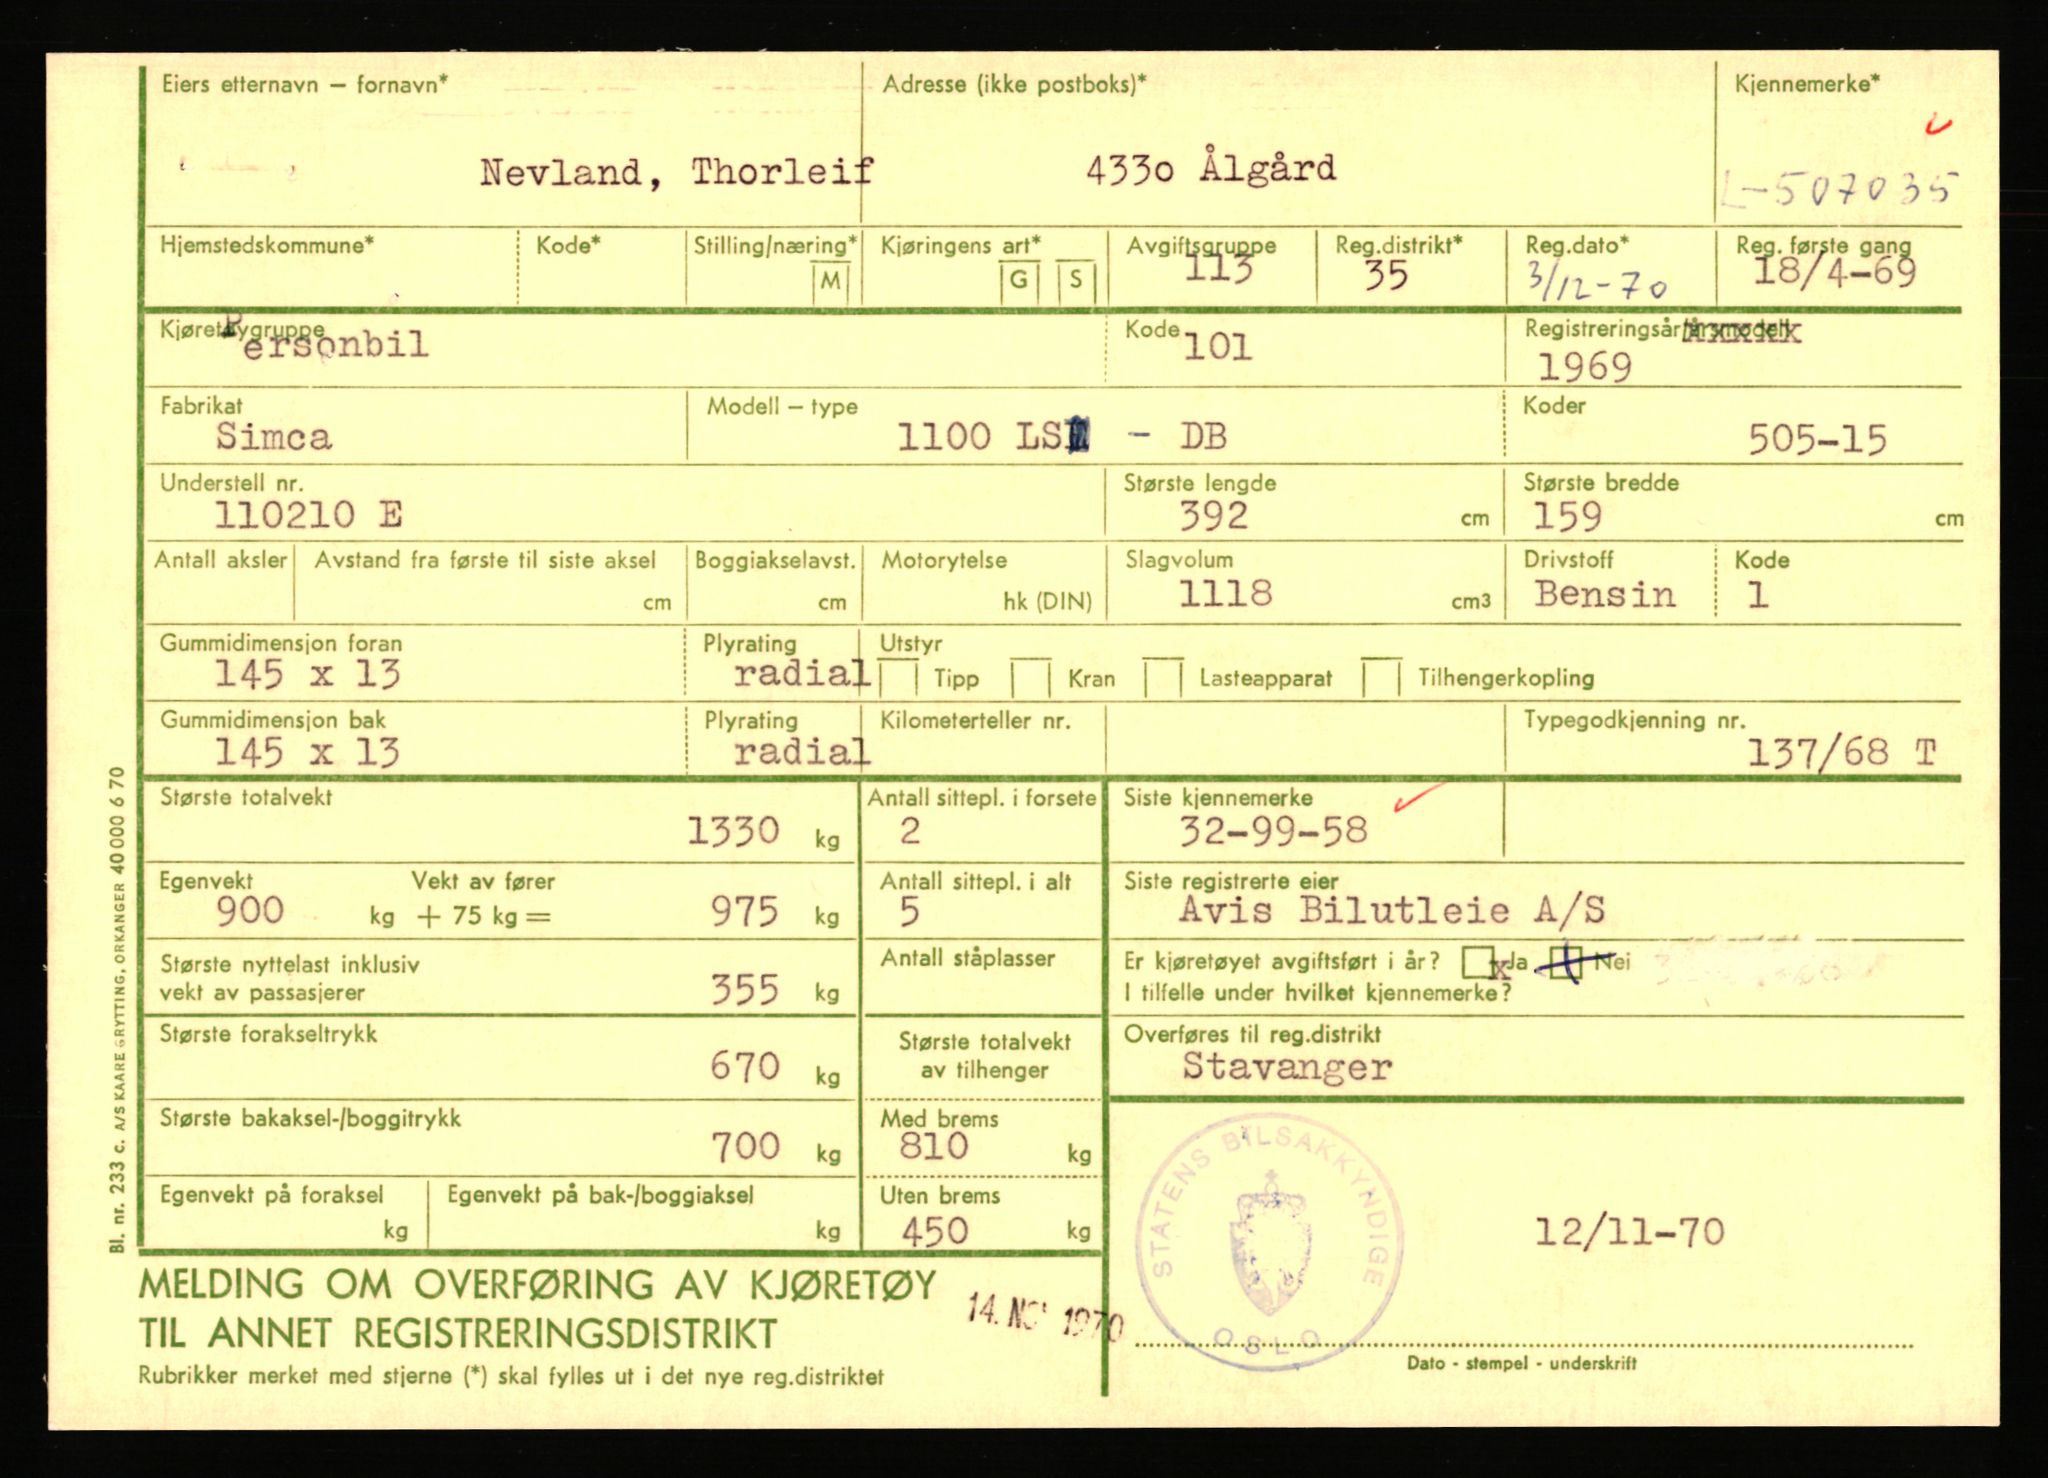 Eiers etternavn – fornavn*
Adresse (ikke postboks)*
Kjennemerke*
Nevland, Thorleif
433o Ålgård
L-507035
Hjemstedskommune*
Kode*
Stilling/næring*
M
Kjøringens art*
G
S
Avgiftsgruppe
113
Reg.distrikt*
35
Reg.dato*
3/12-70
Reg. første gang
18/4-69
Kjøretøygruppe
Personbil
Kode
101
Registreringsår/årsmodell
1969
Fabrikat
Simca
Modell – type
1100 LS – DB
Koder
505-15
Understell nr.
110210 E
Største lengde
392 cm
Største bredde
159 cm
Antall aksler
Avstand fra første til siste aksel
cm
Boggiakselavst.
cm
Motorytelse
hk (DIN)
Slagvolum
1118 cm3
Drivstoff
Bensin
Kode
1
Gummidimensjon foran
145 x 13
Plyrating
radial
Utstyr
Tipp
Kran
Lasteapparat
Tilhengerkopling
Gummidimensjon bak
145 x 13
Plyrating
radial
Kilometerteller nr.
Typegodkjenning nr.
137/68 T
Største totalvekt
1330 kg
Antall sittepl. i forsete
2
Siste kjennemerke
32-99-58
Egenvekt
900 kg
Vekt av fører
+ 75 kg = 975 kg
Antall sittepl. i alt
5
Siste registrerte eier
Avis Bilutleie A/S
Største nyttelast inklusiv
vekt av passasjerer
355 kg
Antall ståplasser
Er kjøretøyet avgiftsført i år? x Ja Nei
I tilfelle under hvilket kjennemerke?
Største forakseltrykk
670 kg
Største totalvekt
av tilhenger
Overføres til reg.distrikt
Stavanger
Største bakaksel-/boggitrykk
700 kg
Med brems
810 kg
Egenvekt på foraksel
kg
Egenvekt på bak-/boggiaksel
kg
Uten brems
450 kg
STATENS BILSAKKYNDIGE
OSLO
12/11-70
Dato - stempel - underskrift
MELDING OM OVERFØRING AV KJØRETØY
TIL ANNET REGISTRERINGSDISTRIKT
14. NOV 1970
Rubrikker merket med stjerne (*) skal fylles ut i det nye reg.distriktet
Bl. nr. 233 c. A/S KAARE GRYTTING, ORKANGER 40 000 6 70